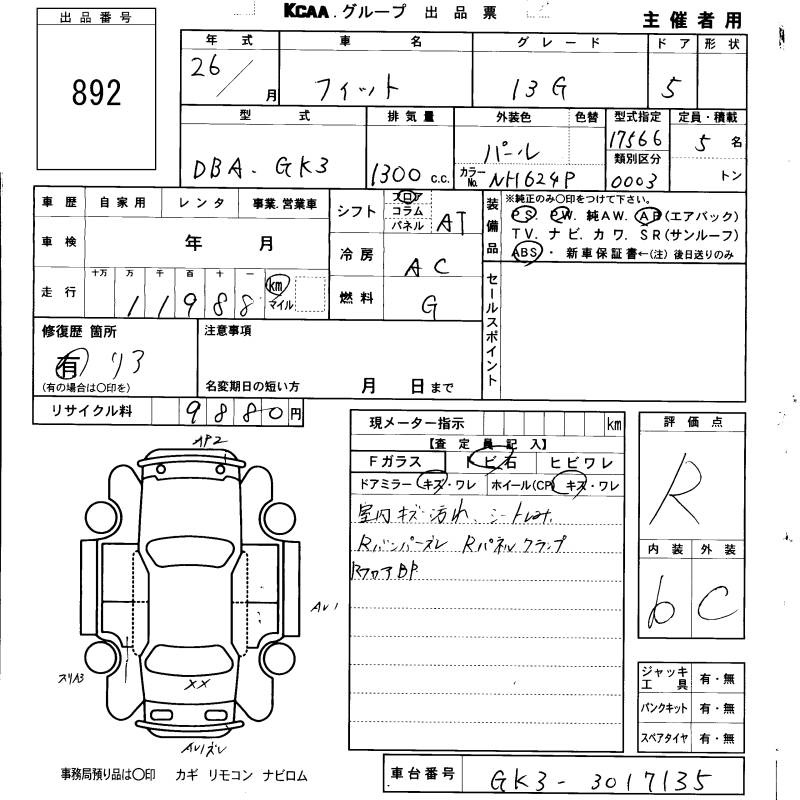 KCAA.グループ 出品票
主催者用
出品番号
892
年式 車名 グレード ドア 形状
26/月 フィット 13G 5
型式 排気量 外装色 色替 型式指定 定員・積載
DBA-GK3 1300c.c. パール 17566 5名
カラーNo. NH624P 類別区分 0003 トン
車歴 自家用 レンタ 事業.営業車
シフト フロア コラム パネル AT
装備品 ※純正のみ○印をつけて下さい。
PS. PW. 純AW. AB(エアバック)
TV. ナビ. カワ. SR(サンルーフ)
ABS・ 新車保証書←(注) 後日送りのみ
車検 年 月
冷房 AC
走行 十万 万 千 百 十 一
11988 km マイル
燃料 G
セールスポイント
修復歴 箇所
有 リア
(有の場合は○印を)
注意事項
名変期日の短い方 月 日まで
リサイクル料 9880円
現メーター指示 km
【査定員記入】
Fガラス トビ石 ヒビワレ
ドアミラー キズ・ワレ ホイール(CP) キズ・ワレ
室内キズ汚れ、シート
Rバンパーズレ Rパネルクランプ
RフロアBP
評価点
R
内装 外装
b C
AP2
AU1
スリA3
XX
AU1ズレ
ジャッキ工具 有・無
パンクキット 有・無
スペアタイヤ 有・無
事務局預り品は○印 カギ リモコン ナビロム
車台番号 GK3-3017135